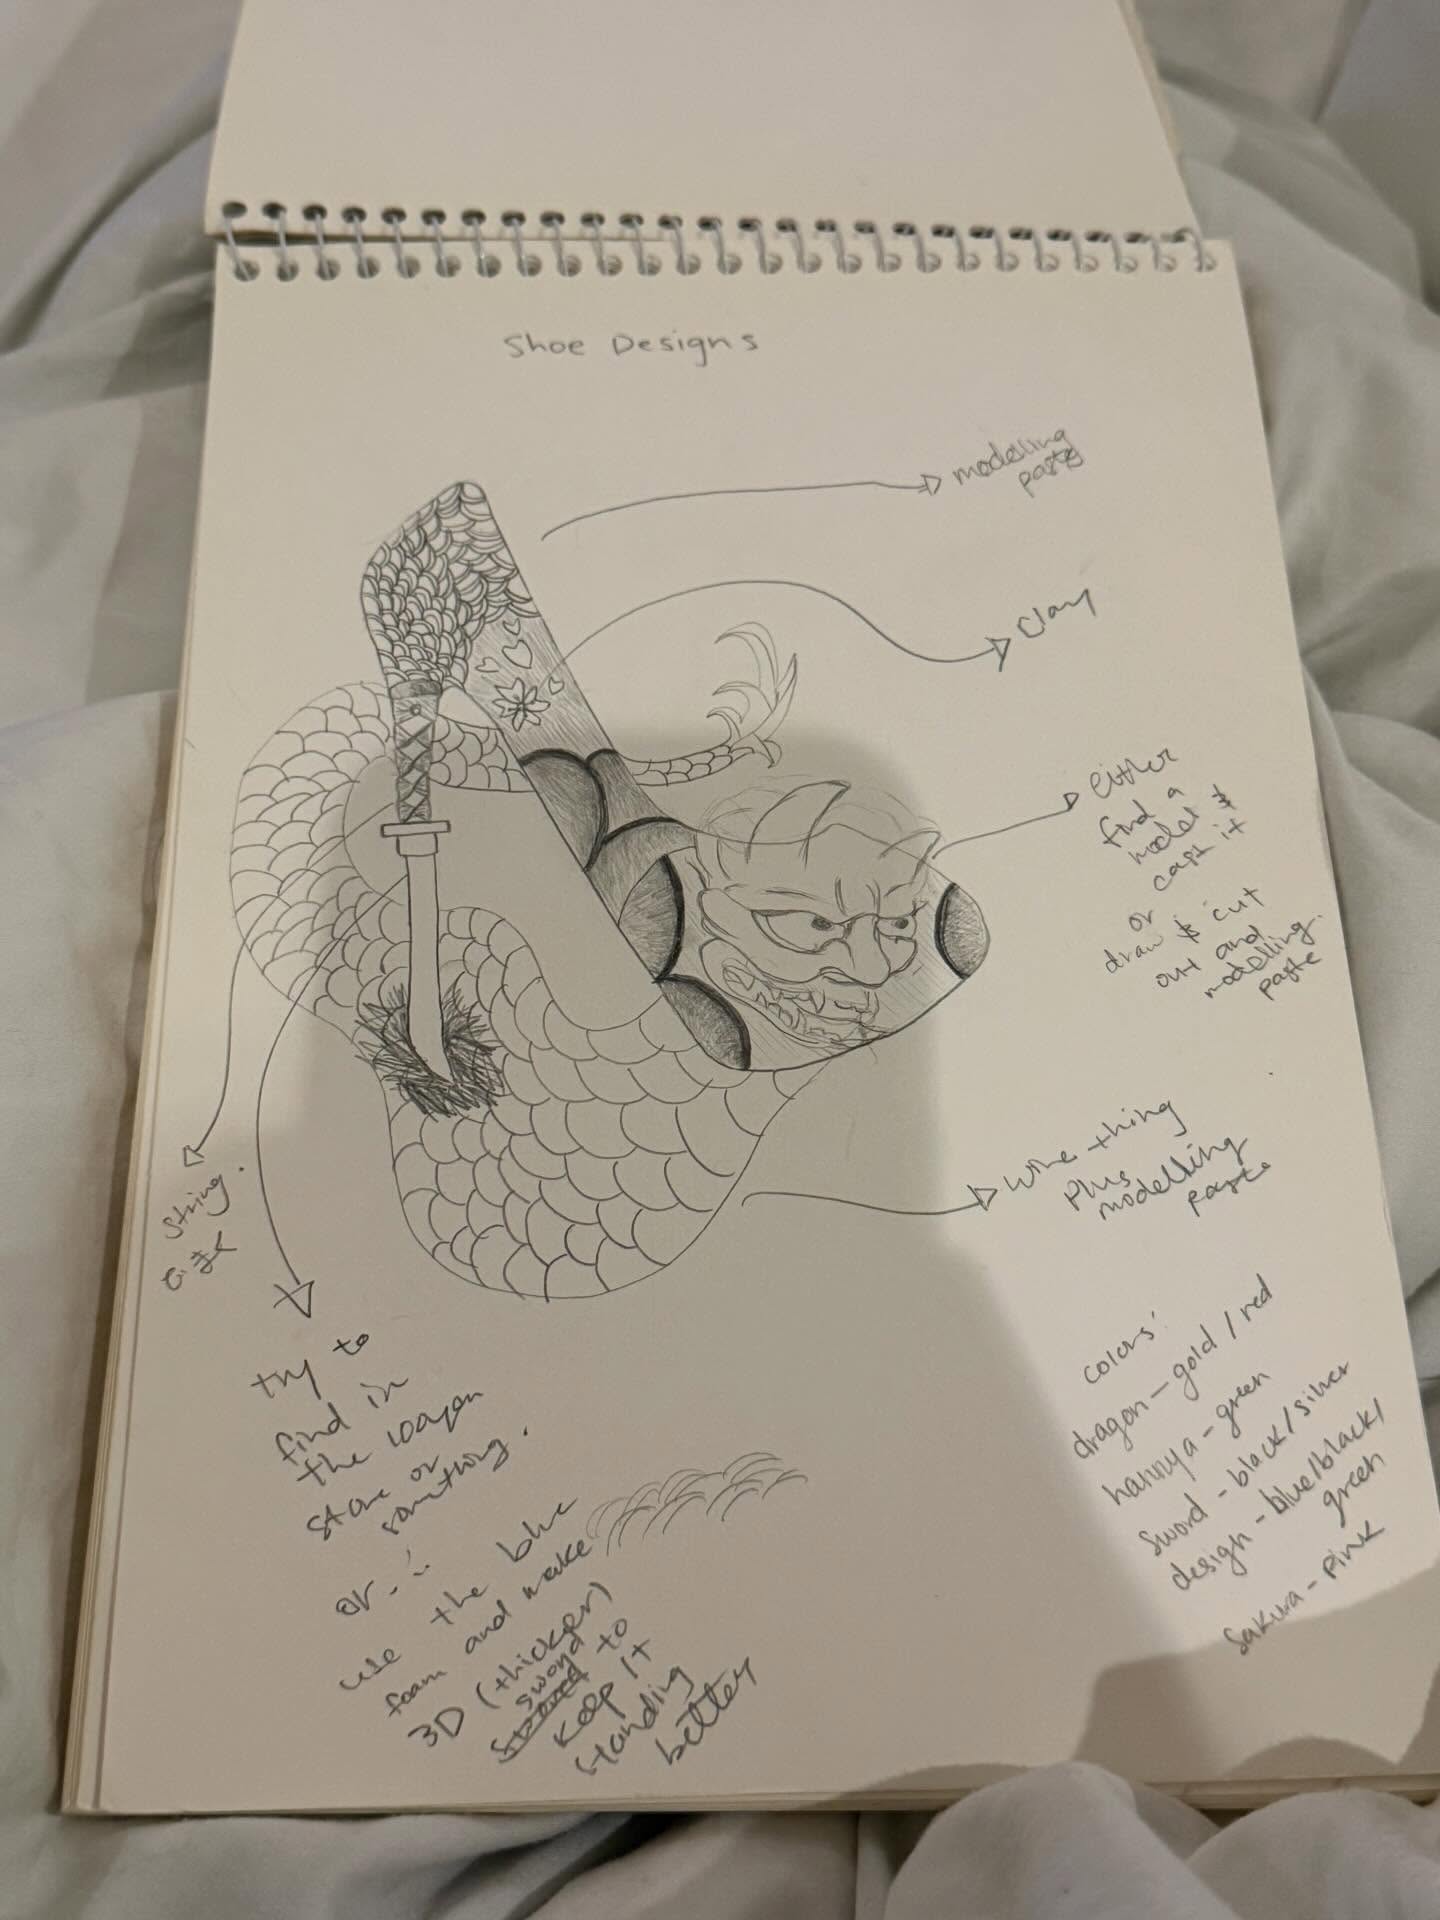 Shoe Designs
modelling
paste
Clay
either
find a
model &
cast it
or
draw & cut
out and
modelling
paste
wire thing
Plus
modelling
paste
String
try to
find in
the
store or
something.
or
use the blue
foam and make
3D (thicker)
sword
to
keep it
standing
better
colors:
dragon - gold / red
hannya - green
Sword - black / silver
design - blue/black/
green
Sakura - pink